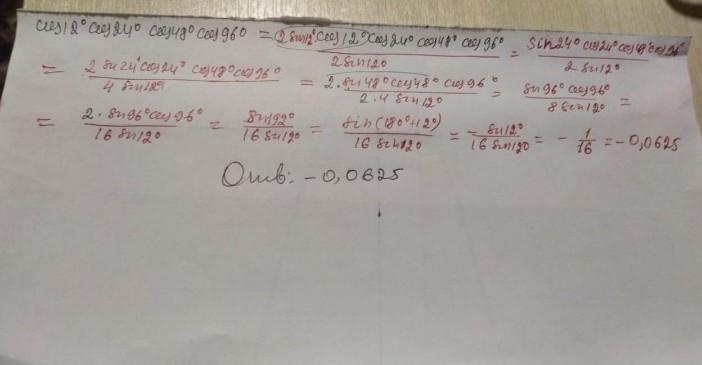 cos12° cos24° cos48° cos96° = (2sin12°cos12°)cos24° cos48° cos96° / 2sin12° = sin24° cos24° cos48° cos96° / 2 sin12°
= 2 sin24° cos24° cos48° cos96° / 4 sin12° = 2·sin48° cos48° cos96° / 2·4 sin12° = sin96° cos96° / 8 sin12° =
= 2·sin96° cos96° / 16 sin12° = sin192° / 16 sin12° = sin(180°+12°) / 16 sin12° = -sin12° / 16 sin12° = - 1/16 = -0,0625
Отв: -0,0625